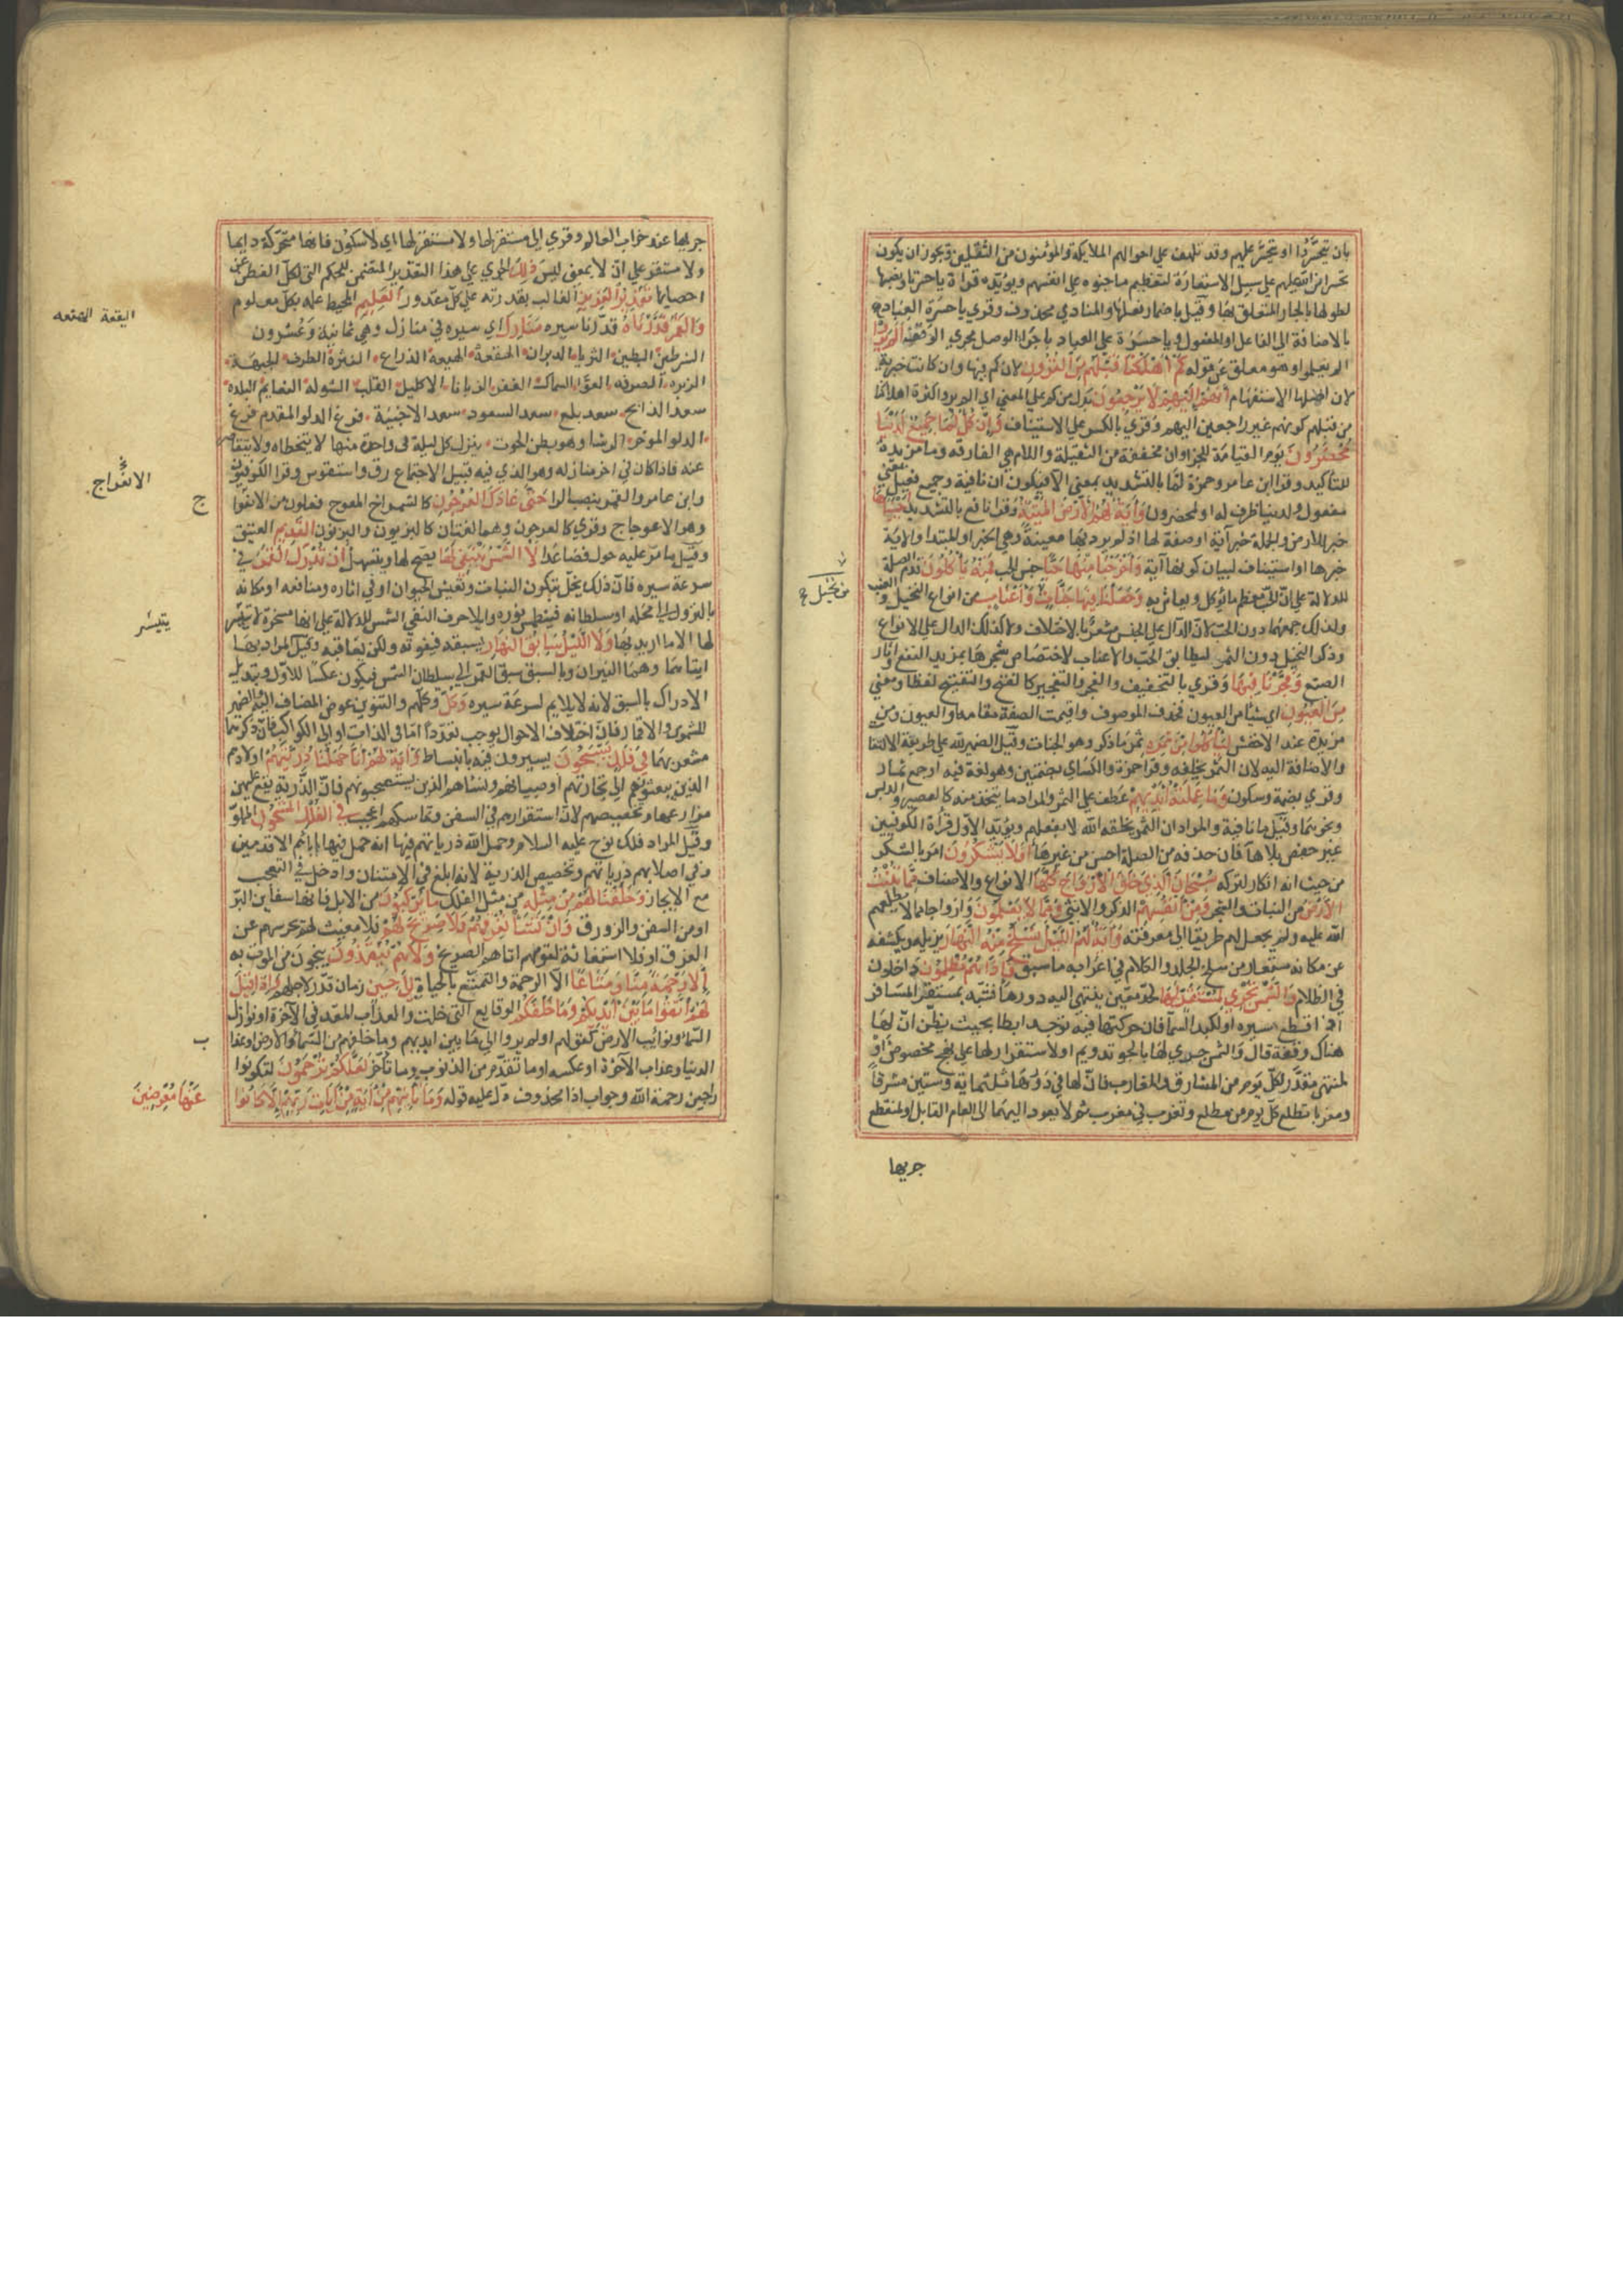 بان يتحسّروا او يتحسّر عليهم وقد تلهف على احوالهم الملايكة والمؤمنون من الثقلين ويجوز ان يكون
تحسرا من الله عليهم على سبيل الاستعارة لتعظيم ما جنوه على انفسهم ويؤيّده قراة يا حسرتا ونصبها
لطولها بالجار المتعلق بها وقيل باضمار فعلها والمنادي محذوف وقري يا حسرة العباد
بالاضافة الى الفاعل او المفعول ويا حسرة على العباد باجراء الوصل مجري الوقف الم يروا
الم يعلموا وهو معلق عن قوله كم اهلكنا قبلهم من القرون لان كم فيها وان كانت خبرية
لان اصلها الاستفهام انهم اليهم لا يرجعون بدل من كم على المعني اي الم يروا كثرة اهلاكنا
من قبلهم كونهم غير راجعين اليهم وقري بالكسر على الاستيناف وان كل لما جميع لدينا
محضرون يوم القيامة للجزا وان مخففة من الثقيلة واللام هي الفارقة وما مزيدة
للتاكيد وقرا ابن عامر وحمزة لمّا بالتشديد بمعني الّا فيكون ان نافية وجميع فعيل بمعني
مفعول ولدينا ظرف له او لمحضرون وآية لهم الارض الميتة وقرا نافع بالتشديد احييناها
خبر للارض والجملة خبر آية او صفة لها اذ لم يرد بها معينة وهي الخبر او المبتدا والاية
خبرها او استيناف لبيان كونها آية واخرجنا منها حبا جنس الحب فمنه ياكلون قدم الصلة
للدلالة على ان الحب معظم ما يؤكل ويعاش به وجعلنا فيها جنات من نخيل واعناب من انواع النخيل والعنب
ولذلك جمعهما دون الحب لان الدال على الجنس مشعر بالاختلاف ولا كذلك الدال على الانواع
وذكر النخيل دون التمر ليطابق الحب والاعناب لاختصاص شجرها بمزيد النفع وآثار
الصنع وفجرنا فيها وقري بالتخفيف والفجر والتفجير كالفتح والتفتيح لفظا ومعني
من العيون اي شيئا من العيون فحذف الموصوف واقيمت الصفة مقامه او العيون ومن
مزيدة عند الاخفش لياكلوا من ثمره ثمر ما ذكر وهو الجنات وقيل الضمير لله على طريقة الالتفات
والاضافة اليه لان الثمر بخلقه وقرا حمزة والكساي بضمتين وهو لغة فيه او جمع ثمار
وقري بضمة وسكون وما عملته ايديهم عطف على الثمر والمراد ما يتخذ منه كالعصير والدبس
ونحوهما وقيل ما نافية والمراد ان الثمر بخلق الله لا بفعلهم ويؤيّد الاول قراة الكوفيين
غير حفص بلا هآ فان حذفه من الصلة احسن من غيرها افلا يشكرون امر بالشكر
من حيث انه انكار لتركه سبحان الذي خلق الازواج كلها الانواع والاصناف مما تنبت
الارض من النبات والشجر ومن انفسهم الذكر والانثي ومما لا يعلمون وازواجا مما لا يطلعهم
الله عليه ولم يجعل لهم طريقا الى معرفته وآية لهم الليل نسلخ منه النهار نزيله ونكشفه
عن مكانه مستعار من سلخ الجلد والكلام في اعرابه ما سبق فاذا هم مظلمون داخلون
في الظلام والشمس تجري لمستقر لها لحد معين ينتهي اليه دورها فشبه بمستقر المسافر
اذا قطع مسيره او لكبد السماء فان حركتها فيه توجد ابطا بحيث يظن ان لها
هناك وقفة قال والشمس حيري لها بالجو تدويم او لاستقرار لها على نهج مخصوص او
لمنتهي مقدر لكل يوم من المشارق والمغارب فان لها في دورها ثلثماية وستين مشرقا
ومغربا تطلع كل يوم من مطلع وتغرب في مغرب ثم لا يعود اليهما الى العام القابل او لمنقطع
جريها
من نخيل
جريها عند خراب العالم وقري الى مستقر لها ولا مستقر لها اي لا سكون فانها متحركة دايما
ولا مستقر على ان لا بمعني ليس ذلك الجري على هذا التقدير المتضمن للحكم التي تكل الفطن عن
احصايها تقدير العزيز الغالب بقدرته على كل مقدور العليم المحيط علمه بكل معلوم
والقمر قدرناه قدرنا مسيره منازل اي سيره في منازل وهي ثمانية وعشرون
الشرطين البطين الثريا الدبران الهقعة الهنعة الذراع النثرة الطرف الجبهة
الزبرة الصرفة العوا السماك الغفر الزبانا الاكليل القلب الشولة النعايم البلدة
سعد الذابح سعد بلع سعد السعود سعد الاخبية فرغ الدلو المقدم فرغ
الدلو المؤخر الرشا وهو بطن الحوت ينزل كل ليلة في واحدة منها لا يتخطاه ولا يتقاصر
عنه فاذا كان في اخر منازله وهو الذي فيه قبيل الاجتماع رق واستقوس وقرا الكوفيون
وابن عامر والقمر بنصب الرا حتى عاد كالعرجون كالشمراخ المعوج فعلون من الانعراج
وهو الاعوجاج وقري كالعرجون وهما لغتان كالبزيون والبزيون القديم العتيق
وقيل ما مر عليه حول فصاعدا لا الشمس ينبغي لها يصح لها ويتسهل ان تدرك القمر في
سرعة سيره فان ذلك يخل بتكون النبات وتعيش الحيوان او في اثاره ومنافعه او مكانه
بالنزول الى محله او سلطانه فيطمس نوره وايلاء حرف النفي الشمس للدلالة على انها مسخرة لا يتيسر
لها الا ما اريد بها ولا الليل سابق النهار يسبقه فيفوته ولكن يعاقبه وقيل المراد بهما
ايتاهما وهما النيران وبالسبق سبق القمر الى سلطان الشمس فيكون عكسا للاول وتبديل
الادراك بالسبق لانه لا يلايم لسرعة سيره وكل وكلهم والتنوين عوض المضاف اليه والضمير
للشموس والاقمار فان اختلاف الاحوال يوجب تعددا مّا في الذات او الى الكواكب فان ذكرهما
مشعر بهما في فلك يسبحون يسيرون فيه بانبساط وآية لهم انا حملنا ذريتهم اولادهم
الذين يبعثونهم الى تجاراتهم او صبيانهم ونساهم الذين يستصحبونهم فان الذرية تقع عليهن
مزارعها وتخصيصهم لان استقرارهم في السفن وتماسكهم اعجب في الفلك المشحون المملو
وقيل المراد فلك نوح عليه السلام وحمل الله ذرياتهم فيها انه حمل فيها اباءهم الاقدمين
وفي اصلابهم ذرياتهم وتخصيص الذرية لانه ابلغ في الامتنان وادخل في التعجب
مع الايجاز وخلقنا لهم من مثله من مثل الفلك ما يركبون من الابل فانها سفاين البرّ
او من السفن والزورق وان نشا نغرقهم فلا صريخ لهم فلا مغيث لهم يحرسهم عن
الغرق او فلا استغاثة لقولهم اتاهم الصريخ ولا هم ينقذون ينجون من الموت به
الا رحمة منا ومتاعا الا لرحمة والتمتيع بالحياة الى حين زمان قدر لاجلهم واذا قيل
لهم اتقوا ما بين ايديكم وما خلفكم الوقايع التي خلت والعذاب المعد في الآخرة او نوازل
السماء ونوايب الارض كقوله اولم يروا الى ما بين ايديهم وما خلفهم من السماء والارض او عذاب
الدنيا وعذاب الآخرة او عكسه او ما تقدم من الذنوب وما تأخر لعلكم ترحمون لتكونوا
راجين رحمة الله وجواب اذا محذوف دل عليه قوله وما تاتيهم من آية من آيات ربهم الا كانوا
عنها معرضين
الهقعة الهنعه
الانعراج
ج
يتيسر
ب